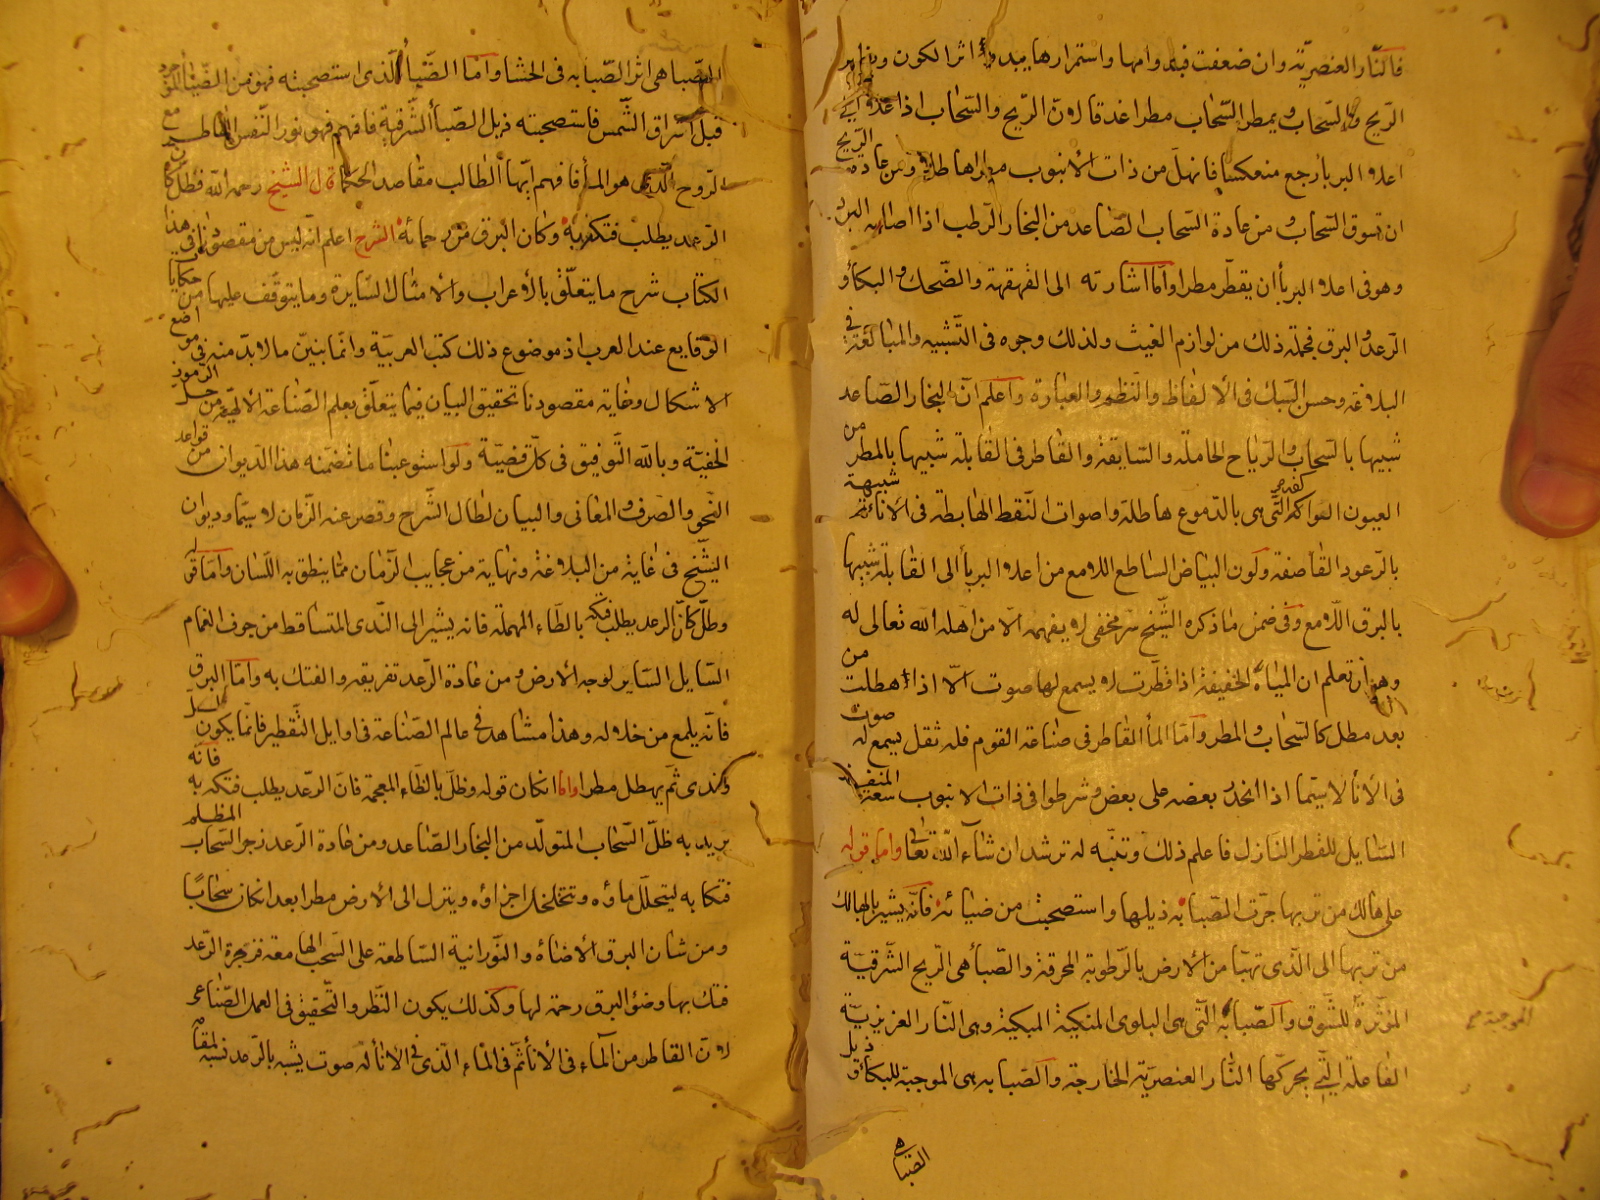 فالنار العنصرية وان ضعفت فبدوامها واستمرارها يبدو اثر الكون
الريح والسحاب ويمطر السحاب مطرا غدقا لان الريح والسحاب اذا علاوا الى
اعلا البربا رجع منعكسا فانهل من ذات الانبوب مطرا هاطلا ومن عادة الريح
ان تسوق السحاب ومن عادة السحاب الصاعد من البخار الرطب اذا اصابه البرد
وهو فى اعلا البربا ان يقطر مطرا واما اشارته الى القهقهة والضحك والبكاء و
الرعد والبرق فجملة ذلك من لوازم الغيث ولذلك وجوه فى التشبيه والمبالغة فى
البلاغة وحسن السبك فى الالفاظ والنظم والعبارة واعلم ان البخار الصاعد
شبيها بالسحاب والرياح الحاملة والسايقة والقاطر فى القابلة شبيها بالمطر من
العيون التى هى بالدموع هاطلة واصوات النقط الهابطة فى الاناء شبيهة
بالرعود القاصفة ولكون البياض الساطع اللامع من اعلا البربا الى القابلة شبيها
بالبرق اللامع وفى ضمن ما ذكره الشيخ سر مخفى لا يفهمه الا من اهله الله تعالى له
وهو ان تعلم ان المياه الخفيفة اذا قطرت لا يسمع لها صوت الا اذا هطلت من
بعد مطل كالسحاب والمطر واما الماء القاطر فى صناعة القوم فله ثقل يسمع له صوت
فى الاناء لا سيما اذا اتخذ بعضه على بعض وشرطوا فى ذات الانبوب سعة المنفذ
السايل للقطر النازل فاعلم ذلك وتنبه له ترشد ان شاء الله تعالى واما قوله
على هالك من تربها جرت الصبابه ذيلها واستصحبت من ضيائه فانه يشير بالهالك
من تربها الى الذى تهبا من الارض بالرطوبة المحرقة والصبا هى الريح الشرقية
المؤثرة للشوق والصبابه التى هى البلوى المنكية المبكية وهى النار العزيزية
الموجبة
الفاعلة التى بحركها النار العنصرية الخارجة والصبابه هى الموجبة للبكاء و ذيل
الصبا هى
الصبا هى اثر الصبابه فى الحشا واما الصبا الذى استصحبته فهو من الضيا
قبل اشراق الشمس فاستصحبته ذيل الصبا الشرقية فافهم فهو نور النفس القاطر مع
الروح الذى هو الماء فافهم ايها الطالب مقاصد الحكما قال الشيخ رحمه الله فطل
الرعد يطلب فتكة به وكان البرق من رحمائه الشرح اعلم انه ليس من مقصودنا فى هذا
الكتاب شرح ما يتعلق بالاعراب والامثال السايرة وما يتوقف عليها من حكايا
الوقايع عند العرب اذ موضوع ذلك كتب العربية وانما بنين ما لا بد منه فى مواضع
الاشكال وغاية مقصودنا تحقيق البيان فيما يتعلق بعلم الصناعة الالهية من حل الرموز
الخفية وبالله التوفيق فى كل قضية ولو استوعبنا ما تضمنه هذا الديوان من قواعد
النحو والصرف والمعانى والبيان لطال الشرح وقصر عنه الزمان لا سيما وديوان
الشيخ فى غاية من البلاغة ونهاية من عجايب الزمان مما ينطق به اللسان واما قوله
وطل كان الرعد يطلب فتكه بالطاء المهملة فانه يشير الى الندى المتساقط من جوف الغمام
السايل الساير لوجه الارض ومن عادة الرعد تفريقه والفتك به واما البرق
فانه يلمع من خلاله وهذا مشاهد فى عالم الصناعة فى اوايل التقطير فانما يكون
كندى ثم يهطل مطرا واما ان كان قوله وظل بالظاء المعجمة فان الرعد يطلب فتكه به فانه
يريد به ظل السحاب المتولد من البخار الصاعد ومن عادة الرعد زجر السحاب المظلم
فتكا به ليتحلل ماؤه وتتخلخل اجزاؤه وينزل الى الارض مطرا بعد ان كان سحابا
ومن شان البرق الاضاة والنورانية الساطعة على السحب الهامعة فزجرة الرعد
فتك بها وضوء البرق رحمة لها وكذلك يكون النظر والتحقيق فى العمل الصناعى
لان القاطر من الماء فى الاناء ثم فى الماء الذى فى الاناء له صوت يشبه بالرعد نسبة